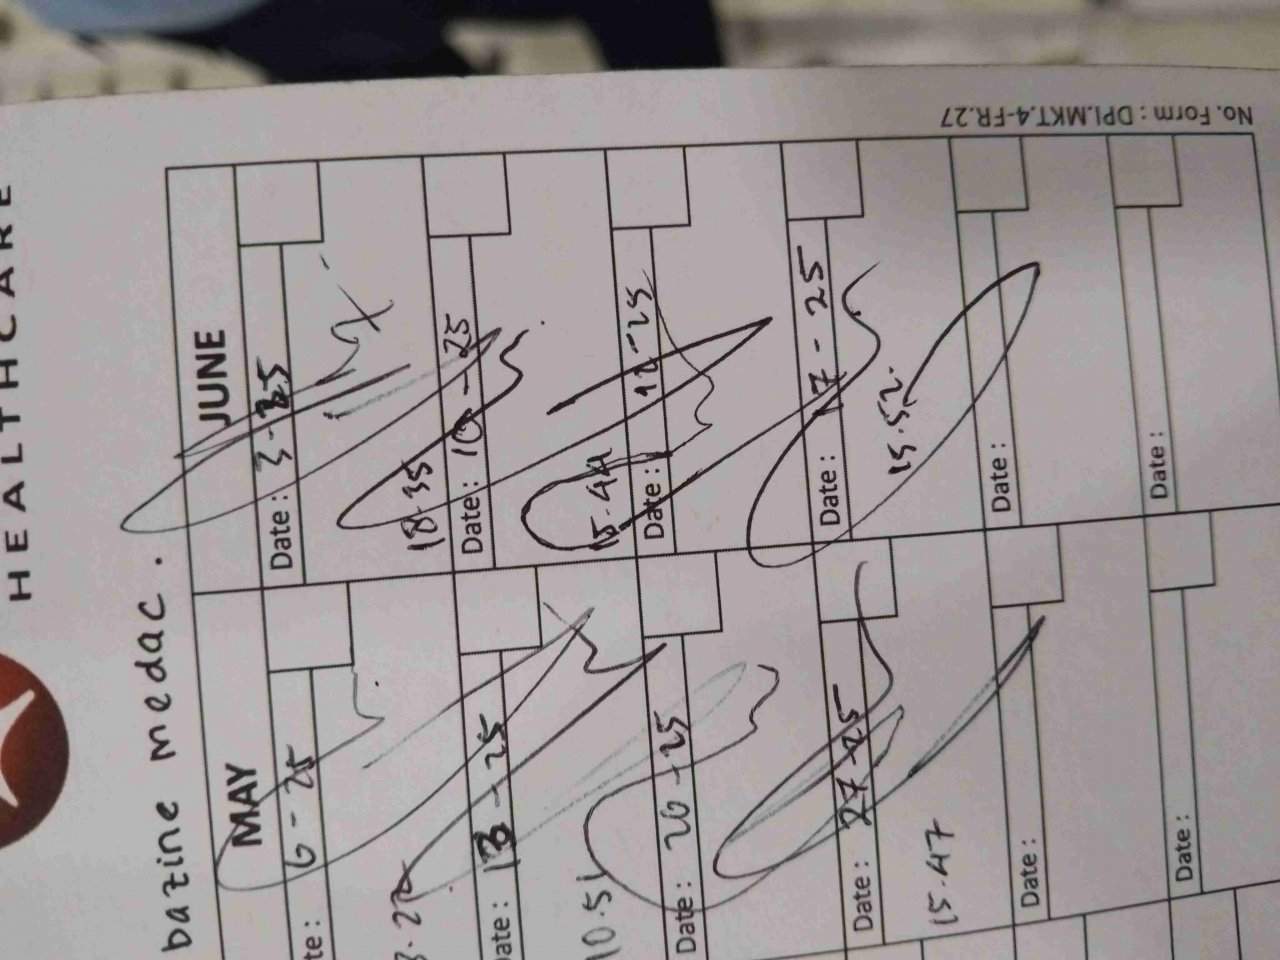 HEALTHCARE
bazine medac.
MAY
JUNE
te: 6-25
Date: 3-25
18.35
ate: 13-25
Date: 10-25
10.51
15.44
Date: 20-25
Date: 12-25
Date: 27-25
Date: 17-25
15.47
15.52.
Date:
Date:
Date:
Date:
No. Form : DPI.MKT.4-FR.27